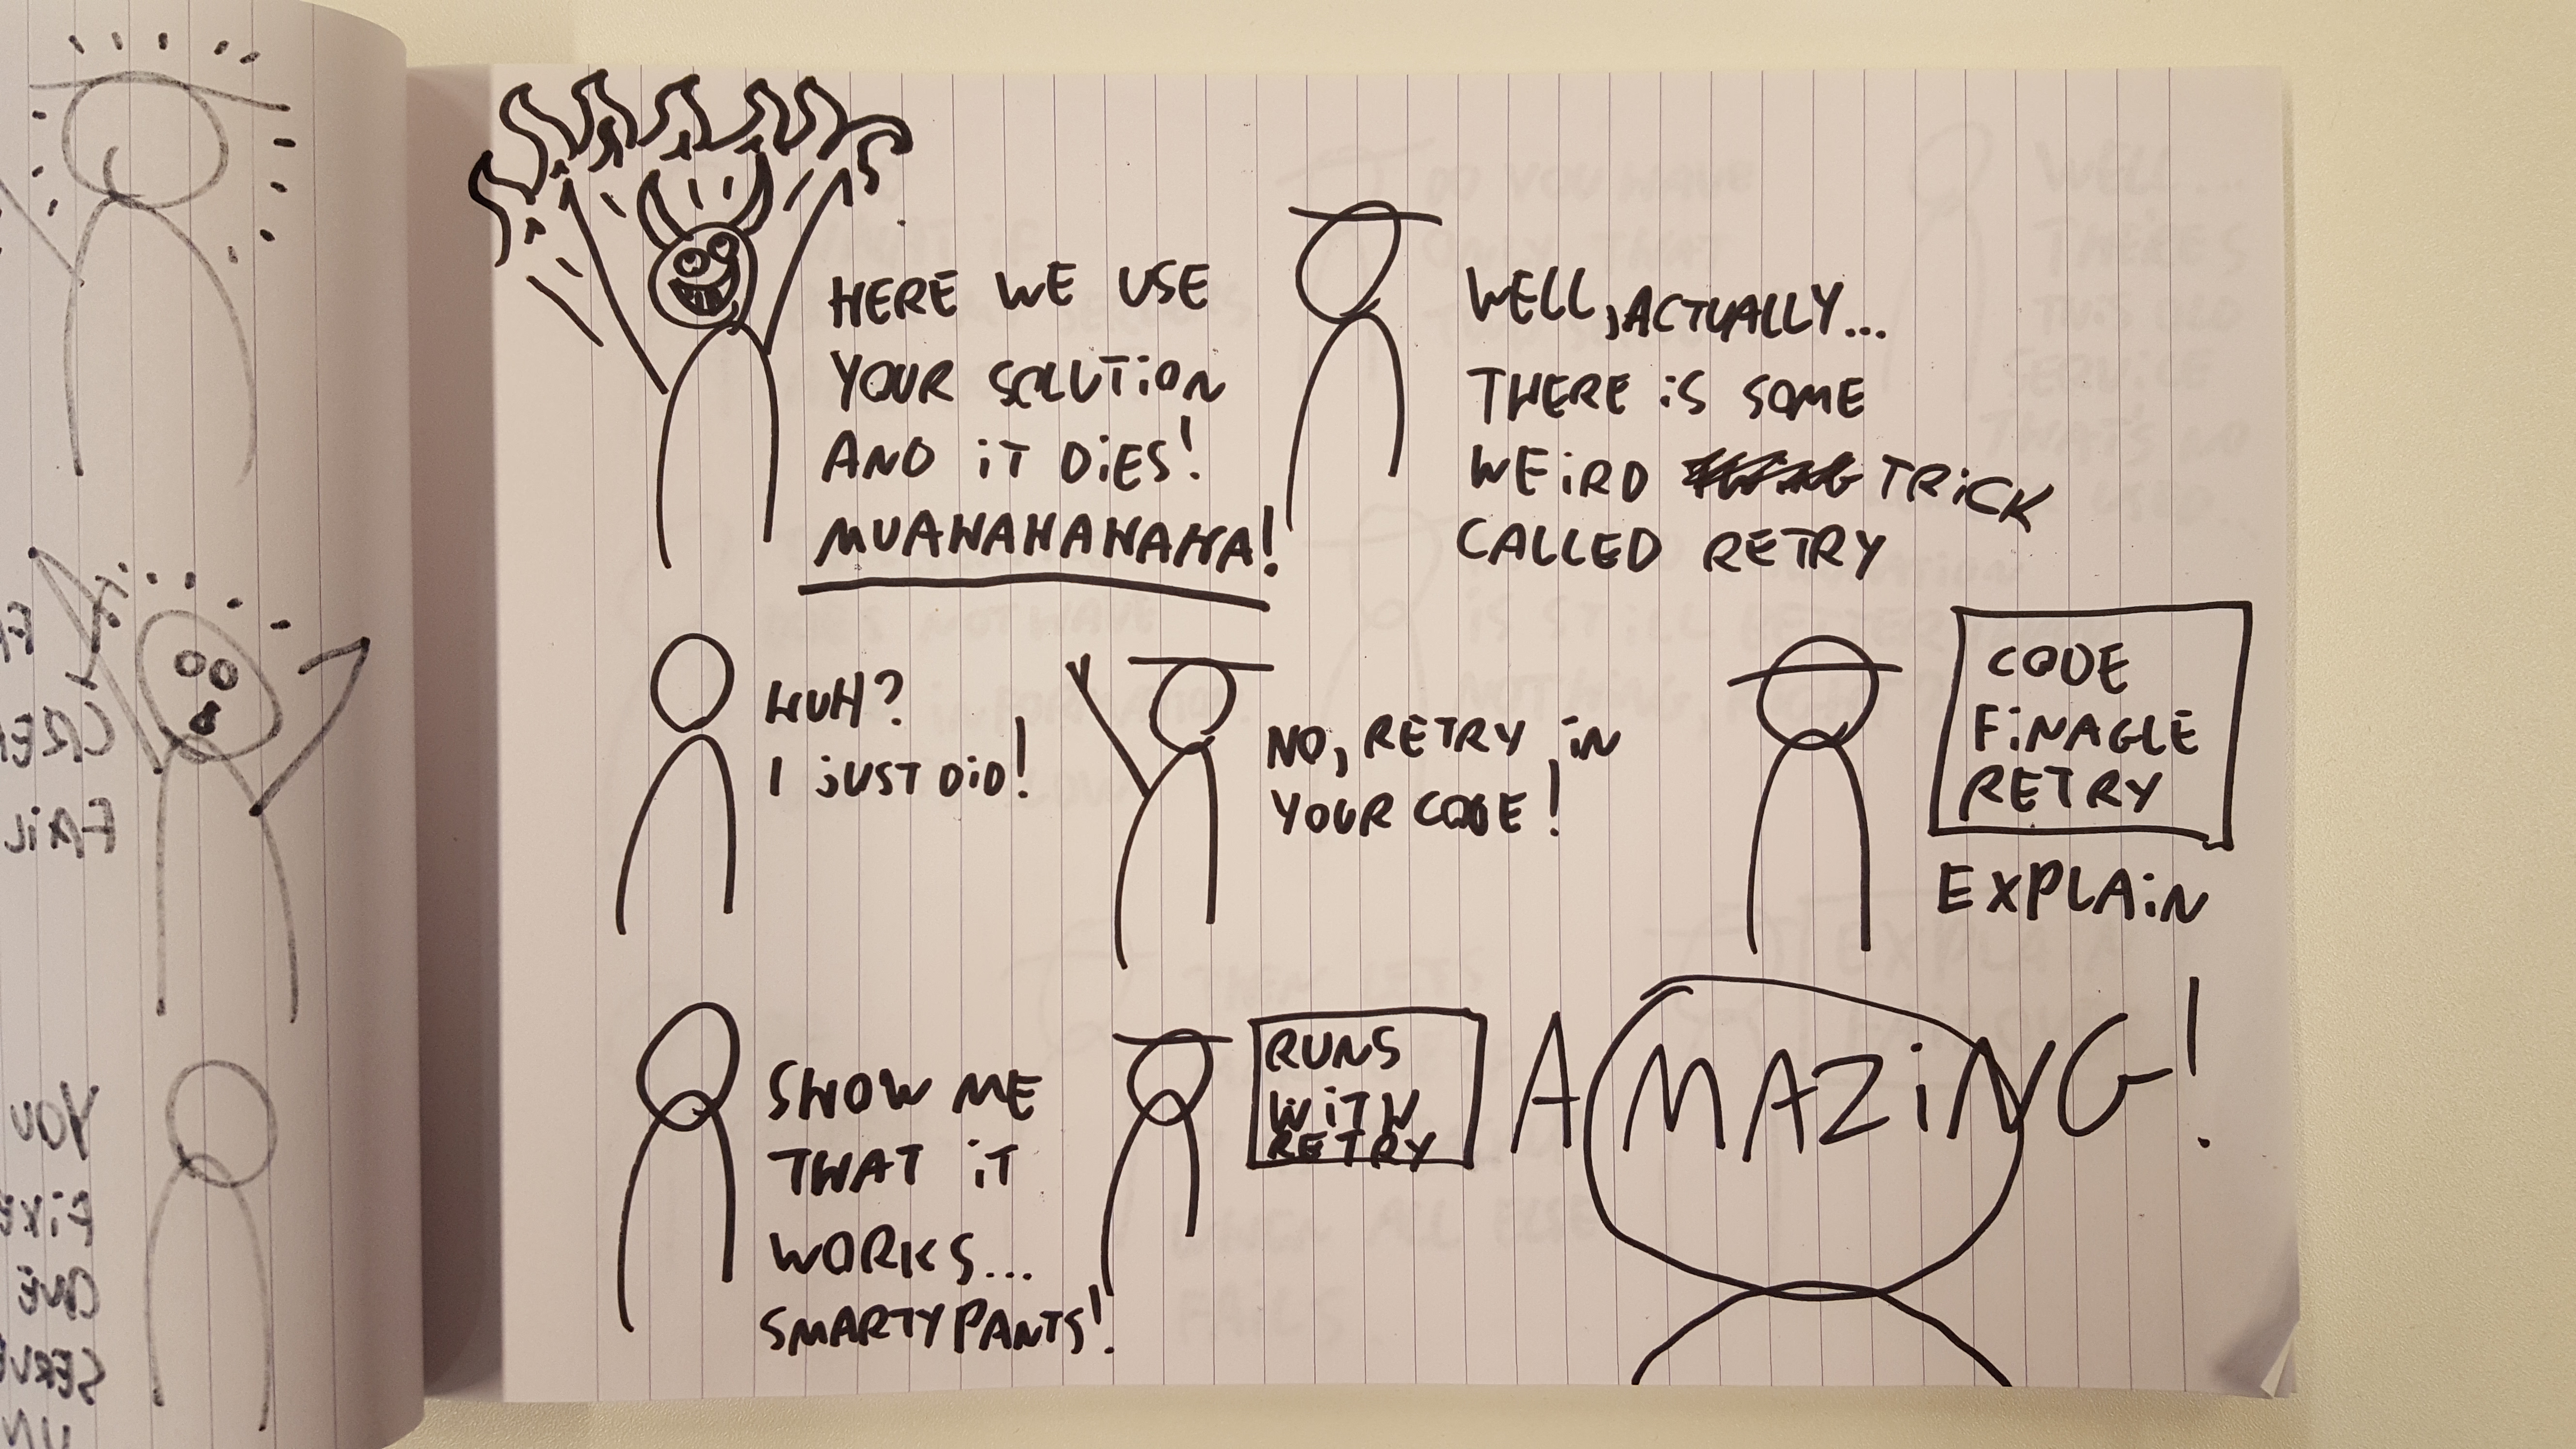 HERE WE USE
YOUR SOLUTION
AND iT DiES!
MUAHAHAHAHA!
WELL, ACTUALLY...
THERE iS SOME
WEiRD TRiCK
CALLED RETRY
HUH?
I JUST DiD!
NO, RETRY iN
YOUR CODE!
CODE
FiNAGLE
RETRY
EXPLAiN
SHOW ME
THAT iT
WORKS...
SMARTYPANTS!
RUNS
WiTH
RETRY
AMAZiNG!